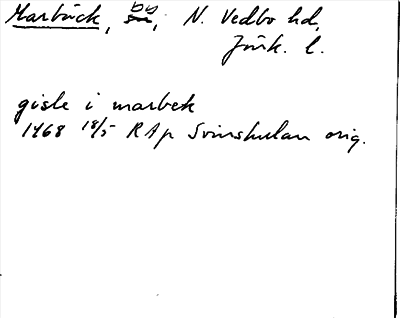 Marbäck, by, N. Vedbo hd,
Jönk. l.
gisle i marbek
1468 18/5 RAp Svinhulan orig.